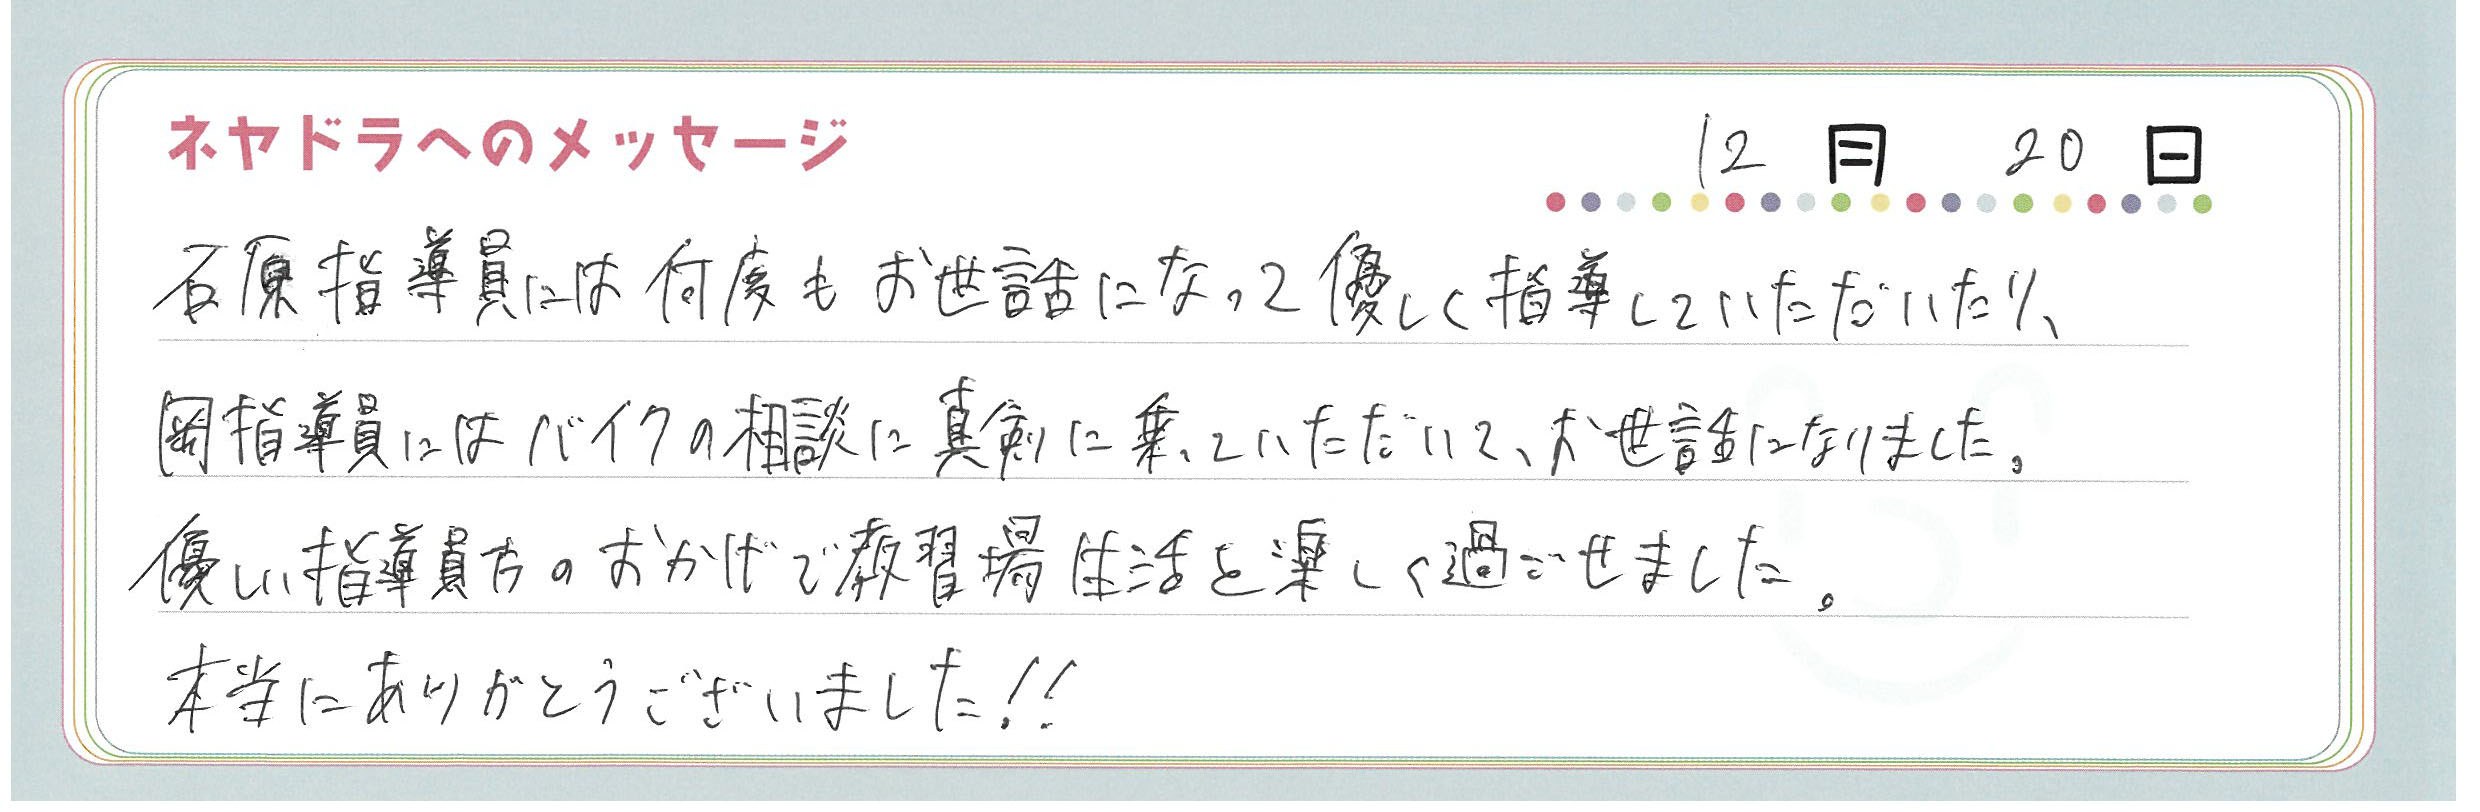 ネヤドラへのメッセージ
12月 20日
石原指導員には何度もお世話になって優しく指導していただいたり、
岡指導員にはバイクの相談に真剣に乗っていただいて、お世話になりました。
優しい指導員方のおかげで教習場生活を楽しく過ごせました。
本当にありがとうございました!!